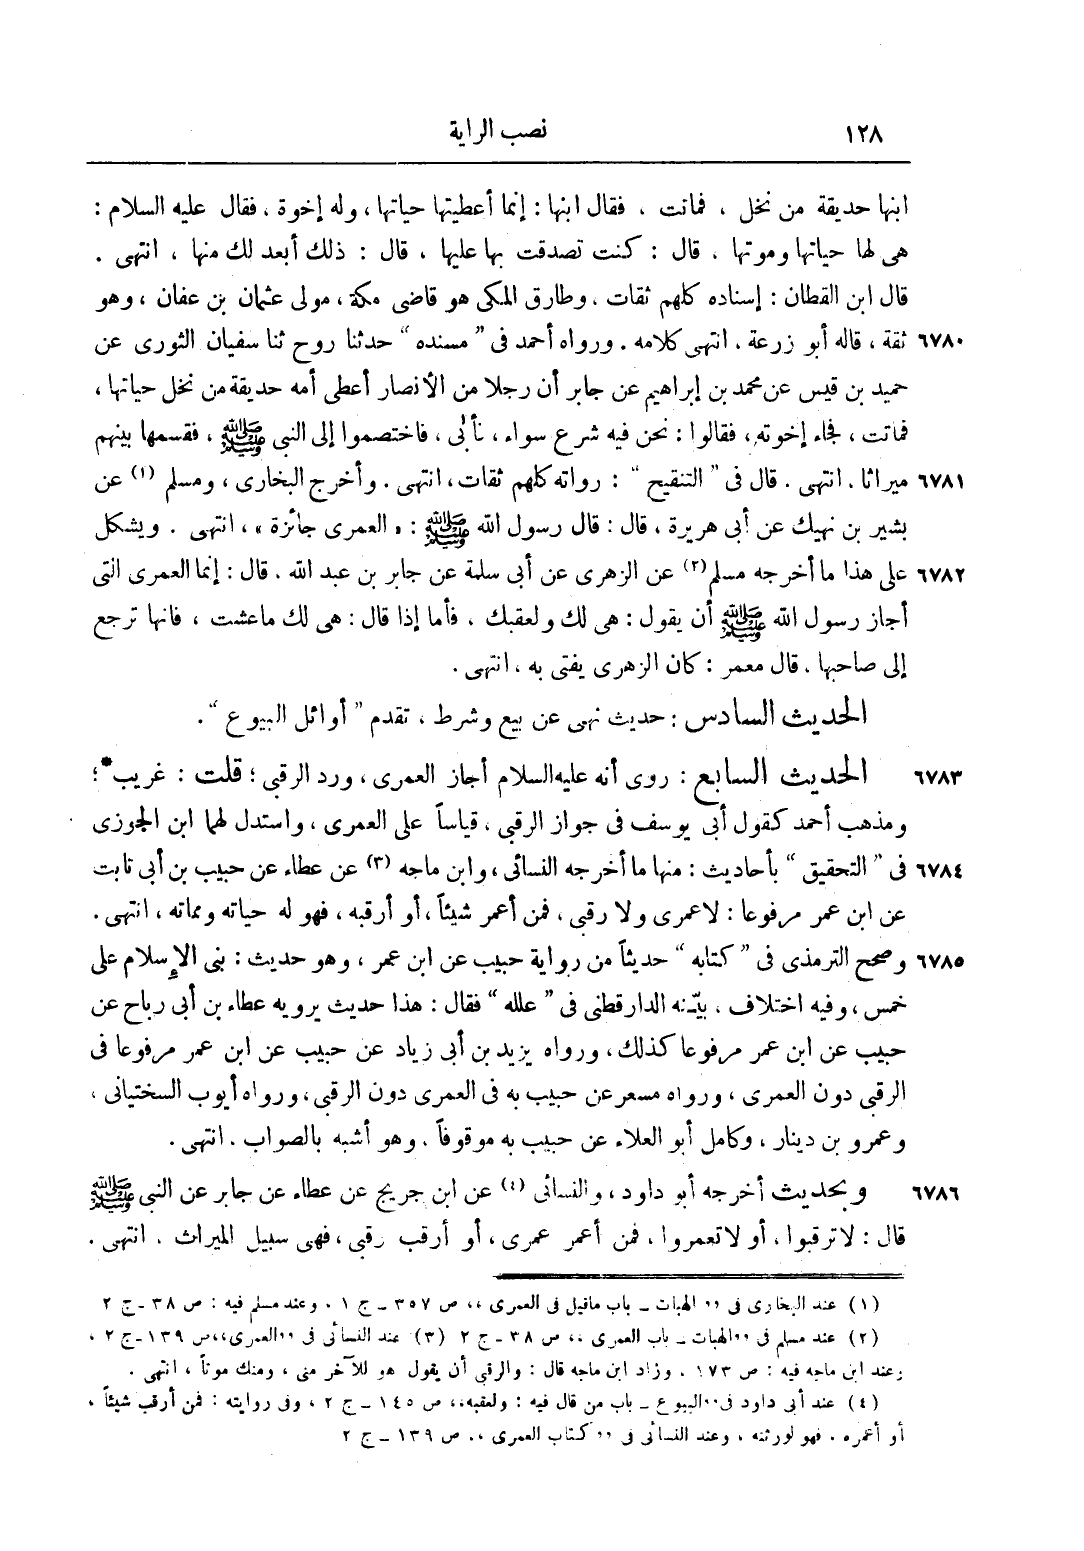 ١٢٨ نصب الراية
ابنها حديقة من نخل ، فماتت ، فقال ابنها : إنما أعطيتها حياتها ، وله إخوة ، فقال عليه السلام :
هى لها حياتها وموتها ، قال : كنت تصدقت بها عليها ، قال : ذلك أبعد لك منها ، انتهى .
قال ابن القطان : إسناده كلهم ثقات ، وطارق المكى هو قاضى مكة ، مولى عثمان بن عفان ، وهو
٦٧٨٠ ثقة ، قاله أبو زرعة ، انتهى كلامه . ورواه أحمد فى " مسنده " حدثنا روح ثنا سفيان الثورى عن
حميد بن قيس عن محمد بن إبراهيم عن جابر أن رجلا من الأنصار أعطى أمه حديقة من نخل حياتها ،
فماتت ، فجاء إخوته ، فقالوا : نحن فيه شرع سواء ، فأبى ، فاختصموا إلى النبى ﷺ ، فقسمها بينهم
٦٧٨١ ميراثا . انتهى . قال فى " التنقيح " : رواته كلهم ثقات ، انتهى . وأخرج البخارى ، ومسلم (١) عن
بشير بن نهيك عن أبى هريرة ، قال : قال رسول الله ﷺ : « العمرى جائزة » ، انتهى . ويشكل
٦٧٨٢ على هذا ما أخرجه مسلم (٢) عن الزهرى عن أبى سلمة عن جابر بن عبد الله . قال : إنما العمرى التى
أجاز رسول الله ﷺ أن يقول : هى لك ولعقبك ، فأما إذا قال : هى لك ماعشت ، فانها ترجع
إلى صاحبها . قال معمر : كان الزهرى يفتى به ، انتهى .
الحديث السادس : حديث نهى عن بيع وشرط ، تقدم " أوائل البيوع " .
٦٧٨٣ الحديث السابع : روى أنه عليه السلام أجاز العمرى ، ورد الرقبى ؛ قلت : غريب * ؛
ومذهب أحمد كقول أبى يوسف فى جواز الرقبى ، قياساً على العمرى ، واستدل لهما ابن الجوزى
٦٧٨٤ فى " التحقيق " بأحاديث : منها ما أخرجه النسائى ، وابن ماجه (٣) عن عطاء عن حبيب بن أبى ثابت
عن ابن عمر مرفوعا : لاعمرى ولا رقبى ، فمن أعمر شيئاً ، أو أرقبه ، فهو له حياته ومماته ، انتهى .
٦٧٨٥ وصحح الترمذى فى " كتابه " حديثاً من رواية حبيب عن ابن عمر ، وهو حديث : بنى الإسلام على
خمس ، وفيه اختلاف ، بيّنه الدارقطنى فى " علله " فقال : هذا حديث يرويه عطاء بن أبى رباح عن
حبيب عن ابن عمر مرفوعا كذلك ، ورواه يزيد بن أبى زياد عن حبيب عن ابن عمر مرفوعا فى
الرقبى دون العمرى ، ورواه مسعر عن حبيب به فى العمرى دون الرقبى ، ورواه أيوب السختيانى ،
وعمرو بن دينار ، وكامل أبو العلاء عن حبيب به موقوفاً ، وهو أشبه بالصواب . انتهى .
٦٧٨٦ وبحديث أخرجه أبو داود ، والنسائى (٤) عن ابن جريج عن عطاء عن جابر عن النبى ﷺ
قال : لاترقبوا ، أو لاتعمروا ، فمن أعمر عمرى ، أو أرقب رقبى ، فهى سبيل الميراث . انتهى .
(١) عند البخارى فى ,, الهبات ـ باب ماقيل فى العمرى ،، ص ٣٥٧ ـ ج ١ ، وعند مسلم فيه : ص ٣٨ ـ ج ٢
(٢) عند مسلم فى ,, الهبات ـ باب العمرى ،، ص ٣٨ ـ ج ٢ (٣) عند النسائى فى ,, العمرى ،، ص ١٣٩ ـ ج ٢ ،
وعند ابن ماجه فيه : ص ١٧٣ ، وزاد ابن ماجه قال : والرقبى أن يقول هو للآخر منى ، ومنك موتاً ، انتهى .
(٤) عند أبى داود فى ,, البيوع ـ باب من قال فيه : ولعقبه ،، ص ١٤٥ ـ ج ٢ ، وفى روايته : فمن أرقب شيئاً ،
أو أعمره ، فهو لورثته ، وعند النسائى فى ,, كتاب العمرى ،، ص ١٣٩ ـ ج ٢